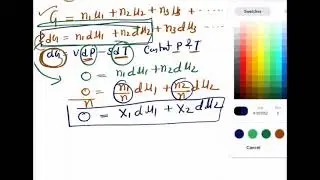 G = n₁μ₁ + n₂μ₂ + n₃μ₃ + ........
dG = n₁dμ₁ + n₂dμ₂ + n₃dμ₃ +
dG = VdP - SdT Constant P & T
0 = n₁dμ₁ + n₂dμ₂
0/n = n₁/n dμ₁ + n₂/n dμ₂
0 = x₁dμ₁ + x₂dμ₂
Swatches
Cancel